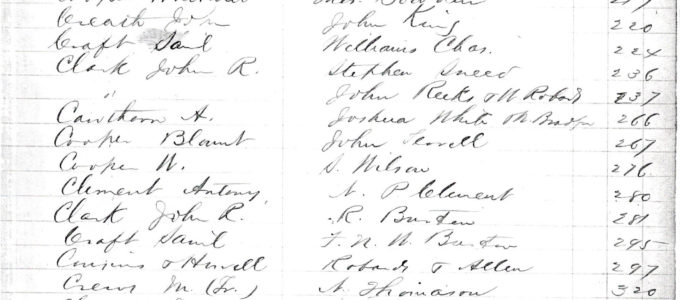 Creath John John King 220
Craft Saml Williams Chas. 224
Clark John R. Stephen Sneed 236
" John Reeks & W Robards 237
Cawthorn A. Joshua White 266
Cooper Blount John Terrell 267
Cooper W. S. Wilson 276
Clement Antony N. P Clement 280
Clark John R. R. Burton 281
Craft Saml F. N. W. Burton 295
Cousins & Howell Robards & Allen 297
Crews M (Jr.) N Thomason 320